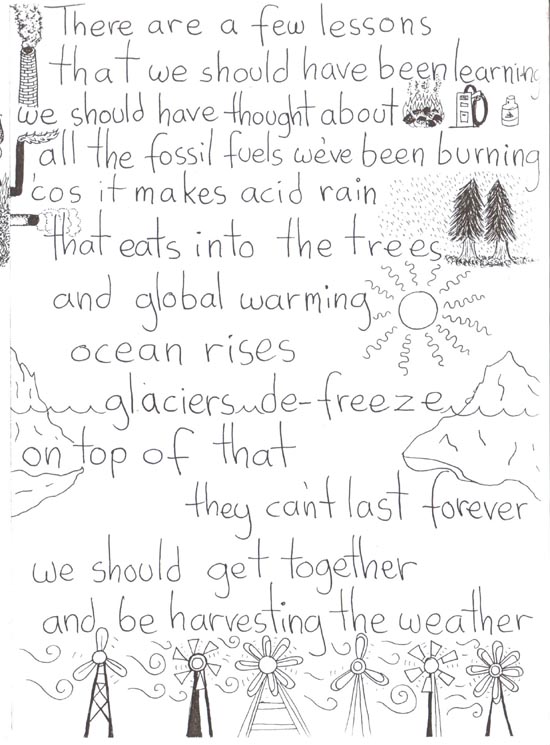 There are a few lessons
that we should have been learning
we should have thought about
all the fossil fuels we've been burning
'cos it makes acid rain
that eats into the trees
and global warming
ocean rises
glaciers de-freeze
on top of that
they can't last forever
we should get together
and be harvesting the weather